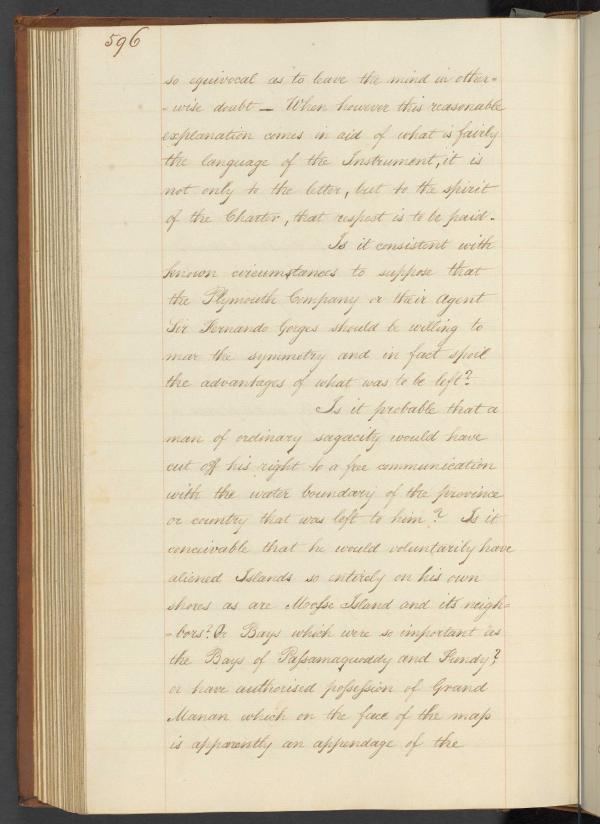 596
so equivocal as to leave the mind in other=
=wise doubt — When however this reasonable
explanation comes in aid of what is fairly
the language of the Instrument, it is
not only to the letter, but to the spirit
of the Charter, that respect is to be paid.
Is it consistent with
known circumstances to suppose that
the Plymouth Company or their Agent
Sir Fernando Gorges should be willing to
mar the symmetry and in fact spoil
the advantages of what was to be left?
Is it probable that a
man of ordinary sagacity would have
cut off his right to a free communication
with the water boundary of the province
or country that was left to him? Is it
conceivable that he would voluntarily have
aliened Islands so entirely on his own
shores as are Moose Island and its neigh=
=bors? Or Bays which were so important as
the Bays of Passamaquoddy and Fundy?
or have authorised possession of Grand
Manan which on the face of the map
is apparently an appendage of the